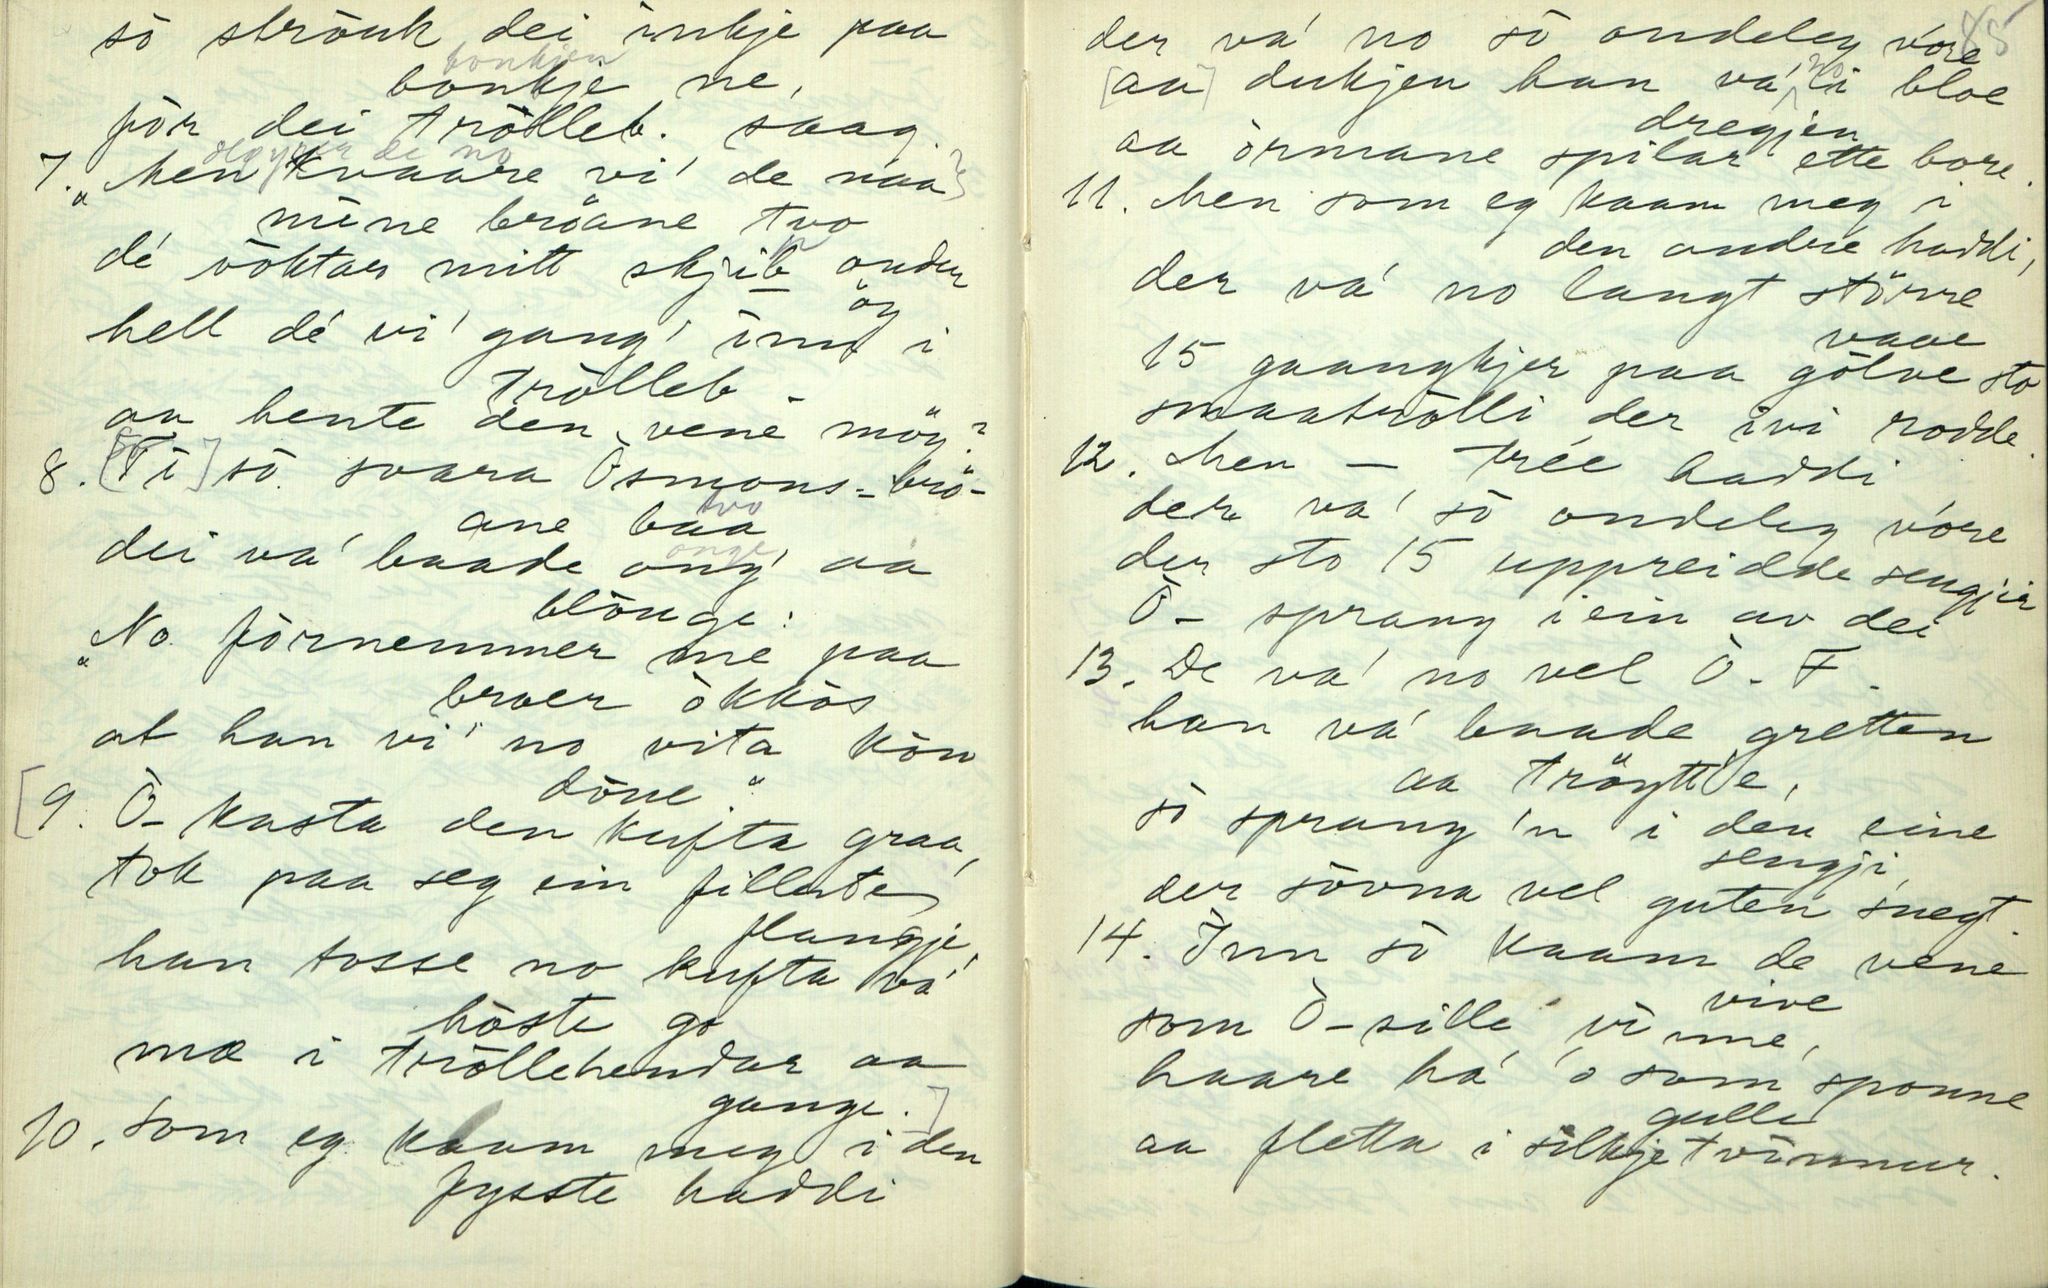 sò strauk dei inkje paa
bonkjen
bonkje ne,
fòr dei tròlleb. saag.
7. „Men kvaare vi' de naa
mine bròane tvo
dé vòktar mitt skjib onder
òy
hell dé vi' gang' inn i
tròlleb –
aa hente den vene möy?
8. [Ti] sò svara Òsmons-brö-
tvo
ane baa
onge
dei va' baade ong' aa
blònge:
„No fòrnemmer me paa
broer òkkòs
at han vi' no vita kòn
dòne."
[9. Ò– kasta den kufta graa,
tok paa seg ein fillute
flangje,
han tosse no kufta va'
hòste go
mæ i tròllehendar aa
gange.]
10. Som eg kaam meg i den
fysste haddi
85
der va' no sò ondeleg vore
no
[aa] dukjen han va' i bloe
dregjen
aa òrmane spilar ette bore.
11. Men som eg kaam meg i
den andre haddi,
der va' no langt större
vaae
15 gaangkjer paa gòlve sto
smaatròlli der ivi rodde.
12. Men – trée haddi
der va' sò ondeleg vore
der sto 15 uppreidde sengjir
Ò– sprang i ein av dei
13. De va' no vel Ò. F.
han va' baade gretten
aa tröytt'e,
sò sprang 'n i den eine
sengji,
der sòvna vel guten snegt.
14. Inn sò kaam de vene
vive
som Ò– sille vinne,
haare ha' 'o som sponne
gulle
aa fletta i silkjetvinnur.